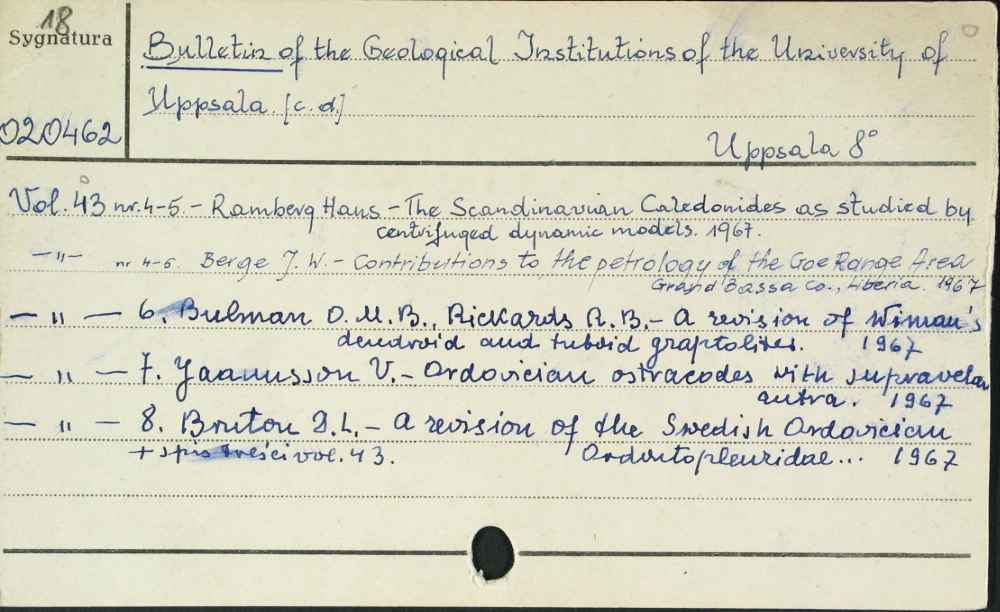 18
Sygnatura
Bulletin of the Geological Institutions of the University of
Uppsala. [c.d.]
020462
Uppsala 8°
Vol. 43 nr. 4-5. - Ramberg Hans - The Scandinavian Caledonides as studied by
centrifuged dynamic models. 1967.
-"- nr 4-5. Berge J. W. - Contributions to the petrology of the Goe Range Area
Grand Bassa Co., Liberia. 1967
- " - 6. Bulman O.M.B., Rickards R.B. - A revision of Wiman's
dendroid and tuboid graptolites. 1967
- " - 7. Jaanusson V. - Ordovician ostracodes with supravelar
antra. 1967
- " - 8. Bruton D.L. - A revision of the Swedish Ordovician
+ spis treści vol. 43. Ordontopleuridae... 1967